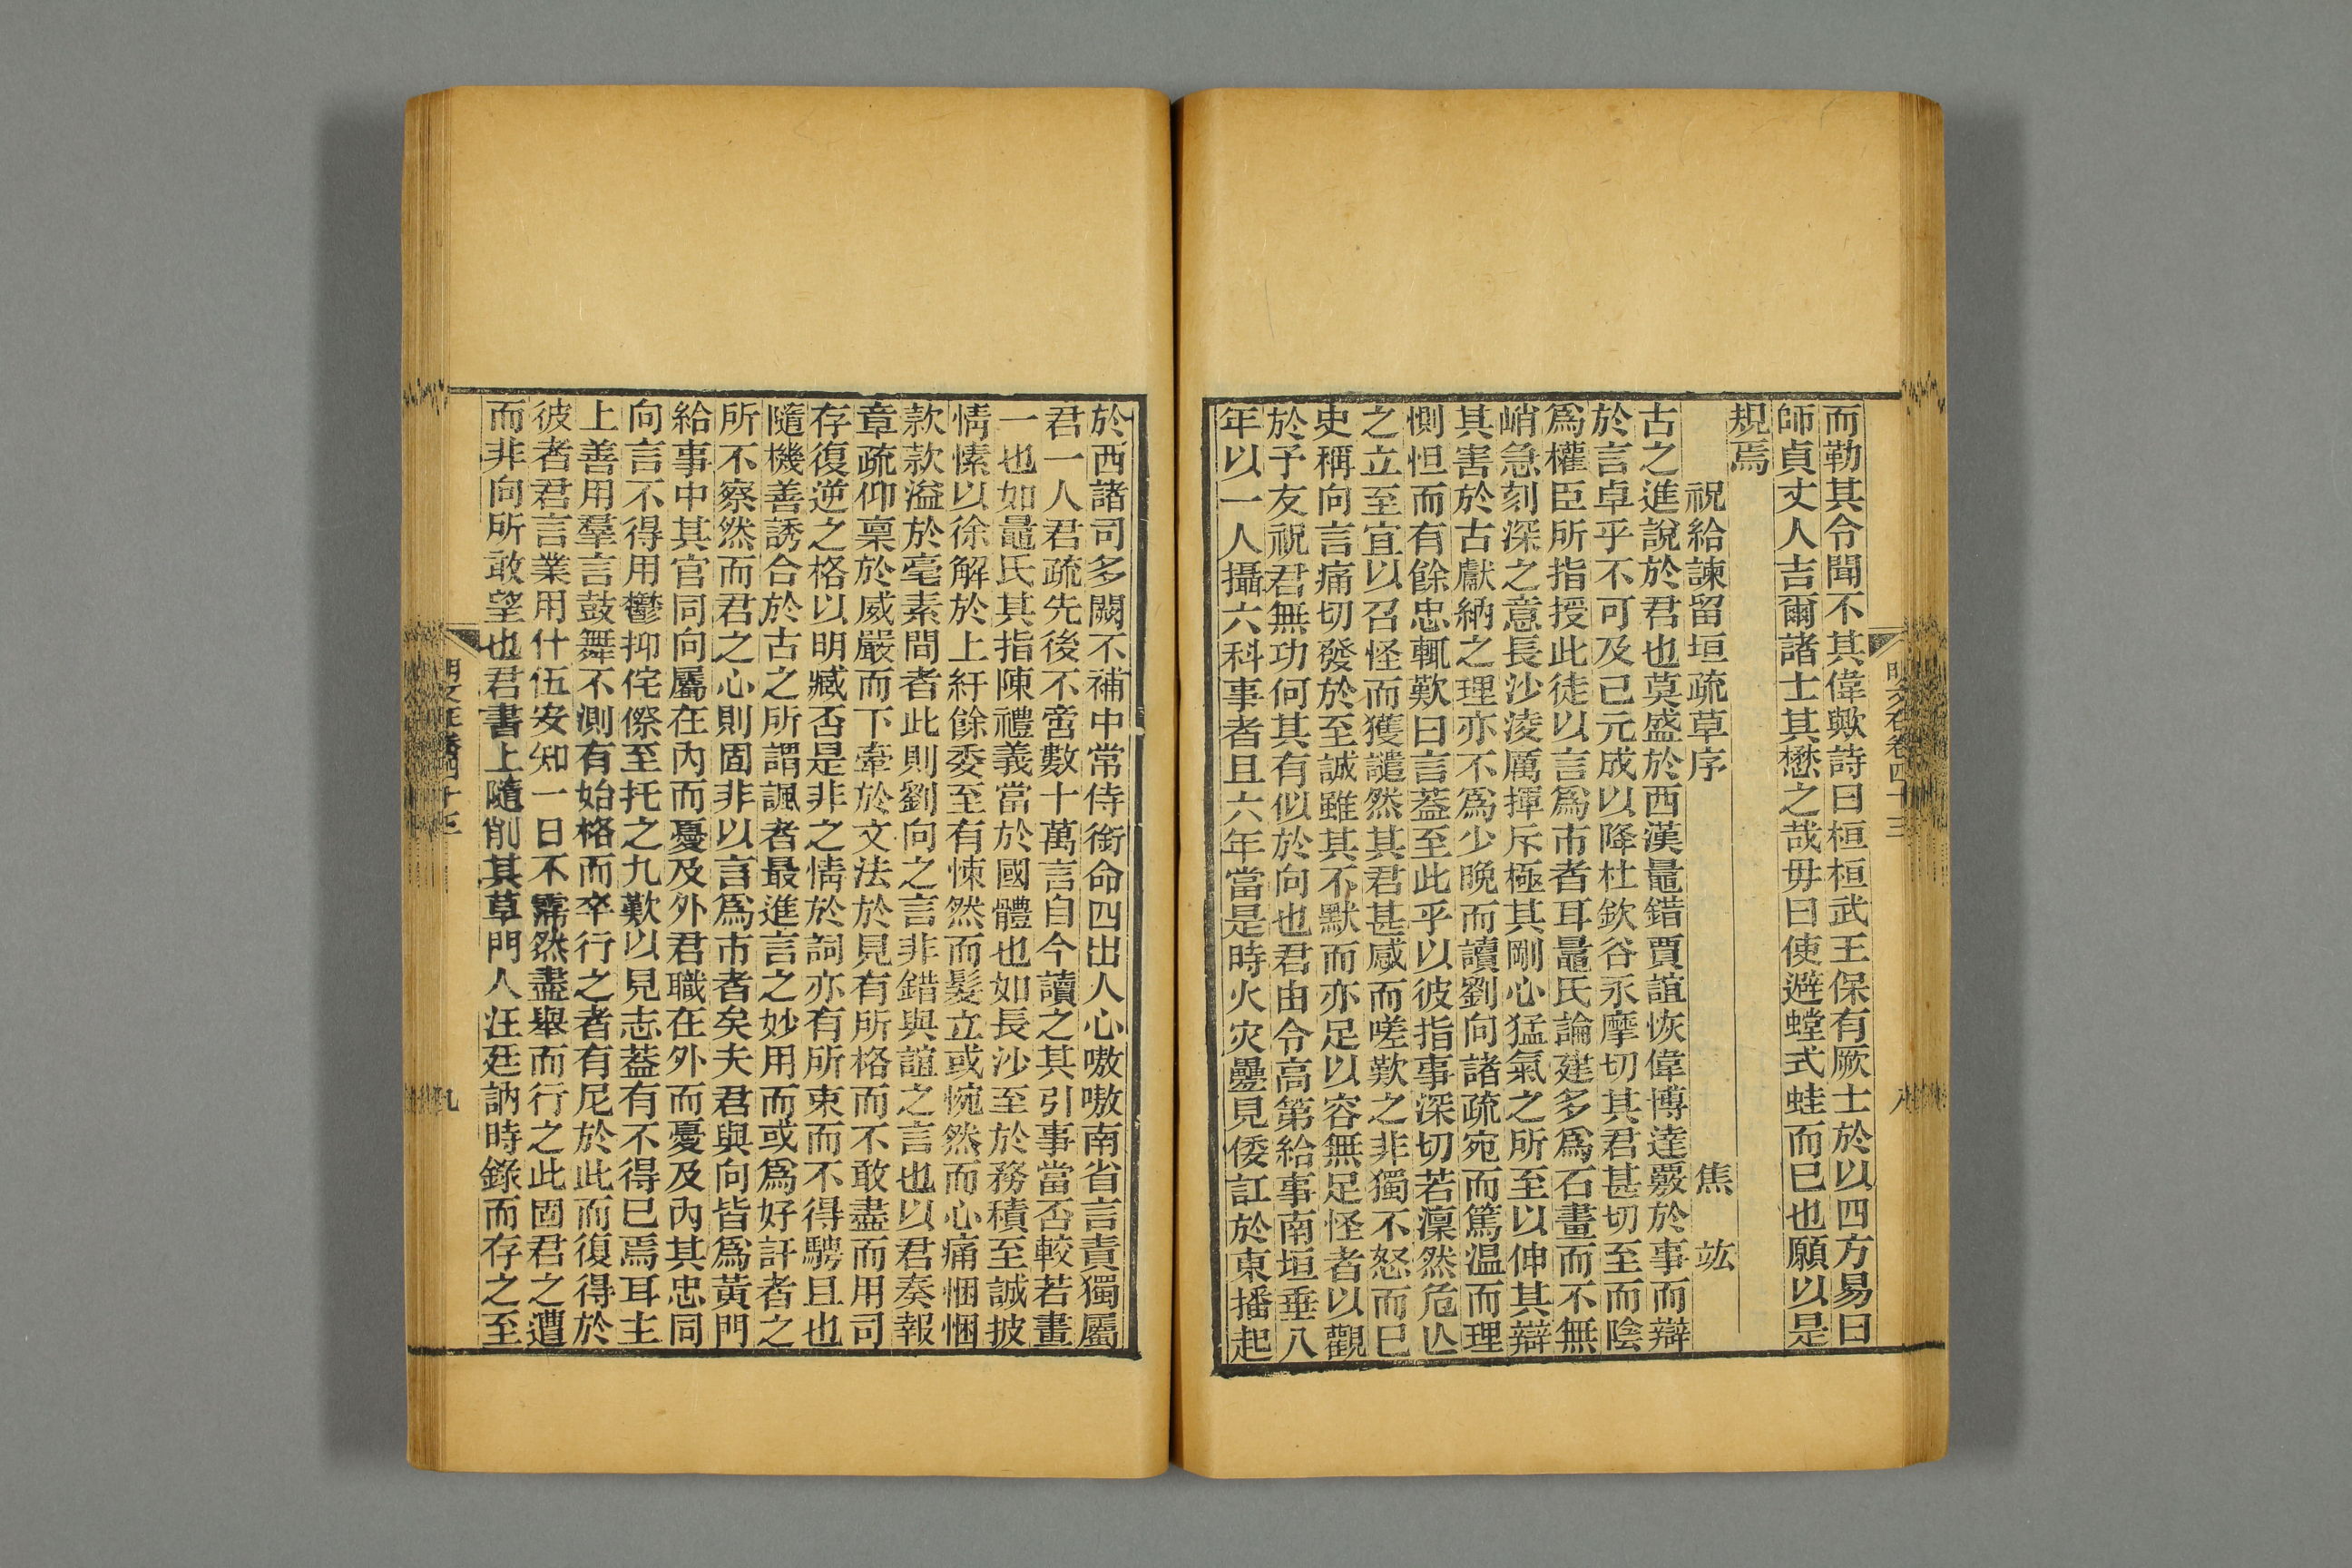 而勒其令聞不其偉歟詩曰桓桓武王保有厥士於以四方易曰
師貞丈人吉爾諸士其懋之哉毋曰使避螳式蛙而已也願以是
規焉
祝給諫留垣疏草序
焦竑
古之進說於君也莫盛於西漢鼂錯賈誼恢偉博達覈於事而辯
於言卓乎不可及已元成以降杜欽谷永摩切其君甚切至而陰
爲權臣所指授此徒以言爲市者耳鼂氏論建多爲石畫而不無
峭急刻深之意長沙淩厲揮斥極其剛心猛氣之所至以伸其辯
其害於古獻納之理亦不爲少晚而讀劉向諸疏宛而篤温而理
惻怛而有餘忠輒歎曰言葢至此乎以彼指事深切若凜然危亾
之立至宜以召怪而獲譴然其君甚感而嗟歎之非獨不怒而已
史稱向言痛切發於至誠雖其不默而亦足以容無足怪者以觀
於予友祝君無功何其有似於向也君由令高第給事南垣垂八
年以一人攝六科事者且六年當是時火灾疊見倭訌於東播起
明文在卷四十三
八
於西諸司多闕不補中常侍銜命四出人心嗷嗷南省言責獨屬
君一人君疏先後不啻數十萬言自今讀之其引事當否較若畫
一也如鼂氏其指陳禮義當於國體也如長沙至於務積至誠披
情愫以徐解於上紆餘委至有悚然而髮立或惋然而心痛悃悃
款款溢於毫素間者此則劉向之言非錯與誼之言也以君奏報
章疏仰稟於威嚴而下牽於文法於見有所格而不敢盡而用司
存復逆之格以明臧否是非之情於詞亦有所束而不得騁且也
隨機善誘合於古之所謂諷者最進言之妙用而或爲好訐者之
所不察然而君之心則固非以言爲市者矣夫君與向皆爲黃門
給事中其官同向屬在內而憂及外君職在外而憂及內其忠同
向言不得用鬱抑侘傺至托之九歎以見志葢有不得已焉耳主
上善用羣言鼓舞不測有始格而卒行之者有尼於此而復得於
彼者君言業用什伍安知一日不霈然盡舉而行之此固君之遭
而非向所敢望也君書上隨削其草門人汪廷訥時錄而存之至
明文在卷四十三
九